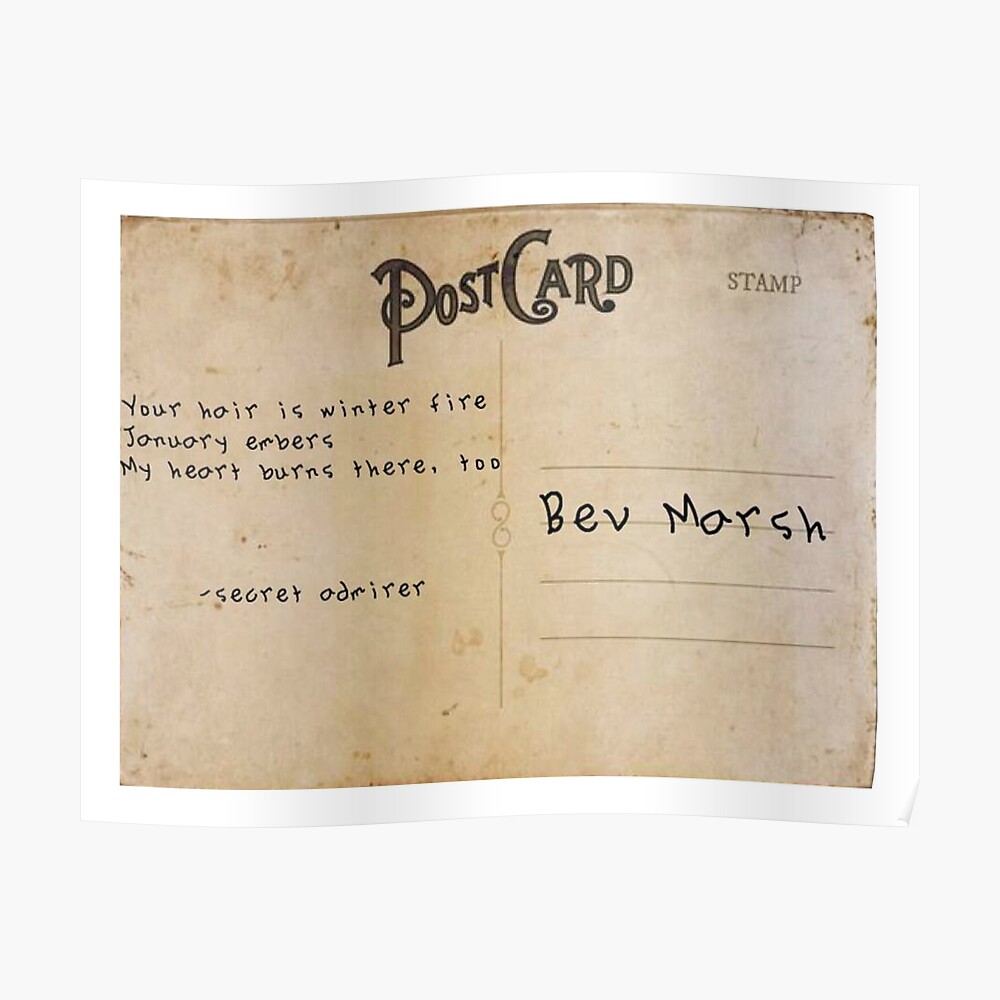 PostCard
STAMP
Your hair is winter fire
January embers
My heart burns there, too
-secret admirer
Bev Marsh